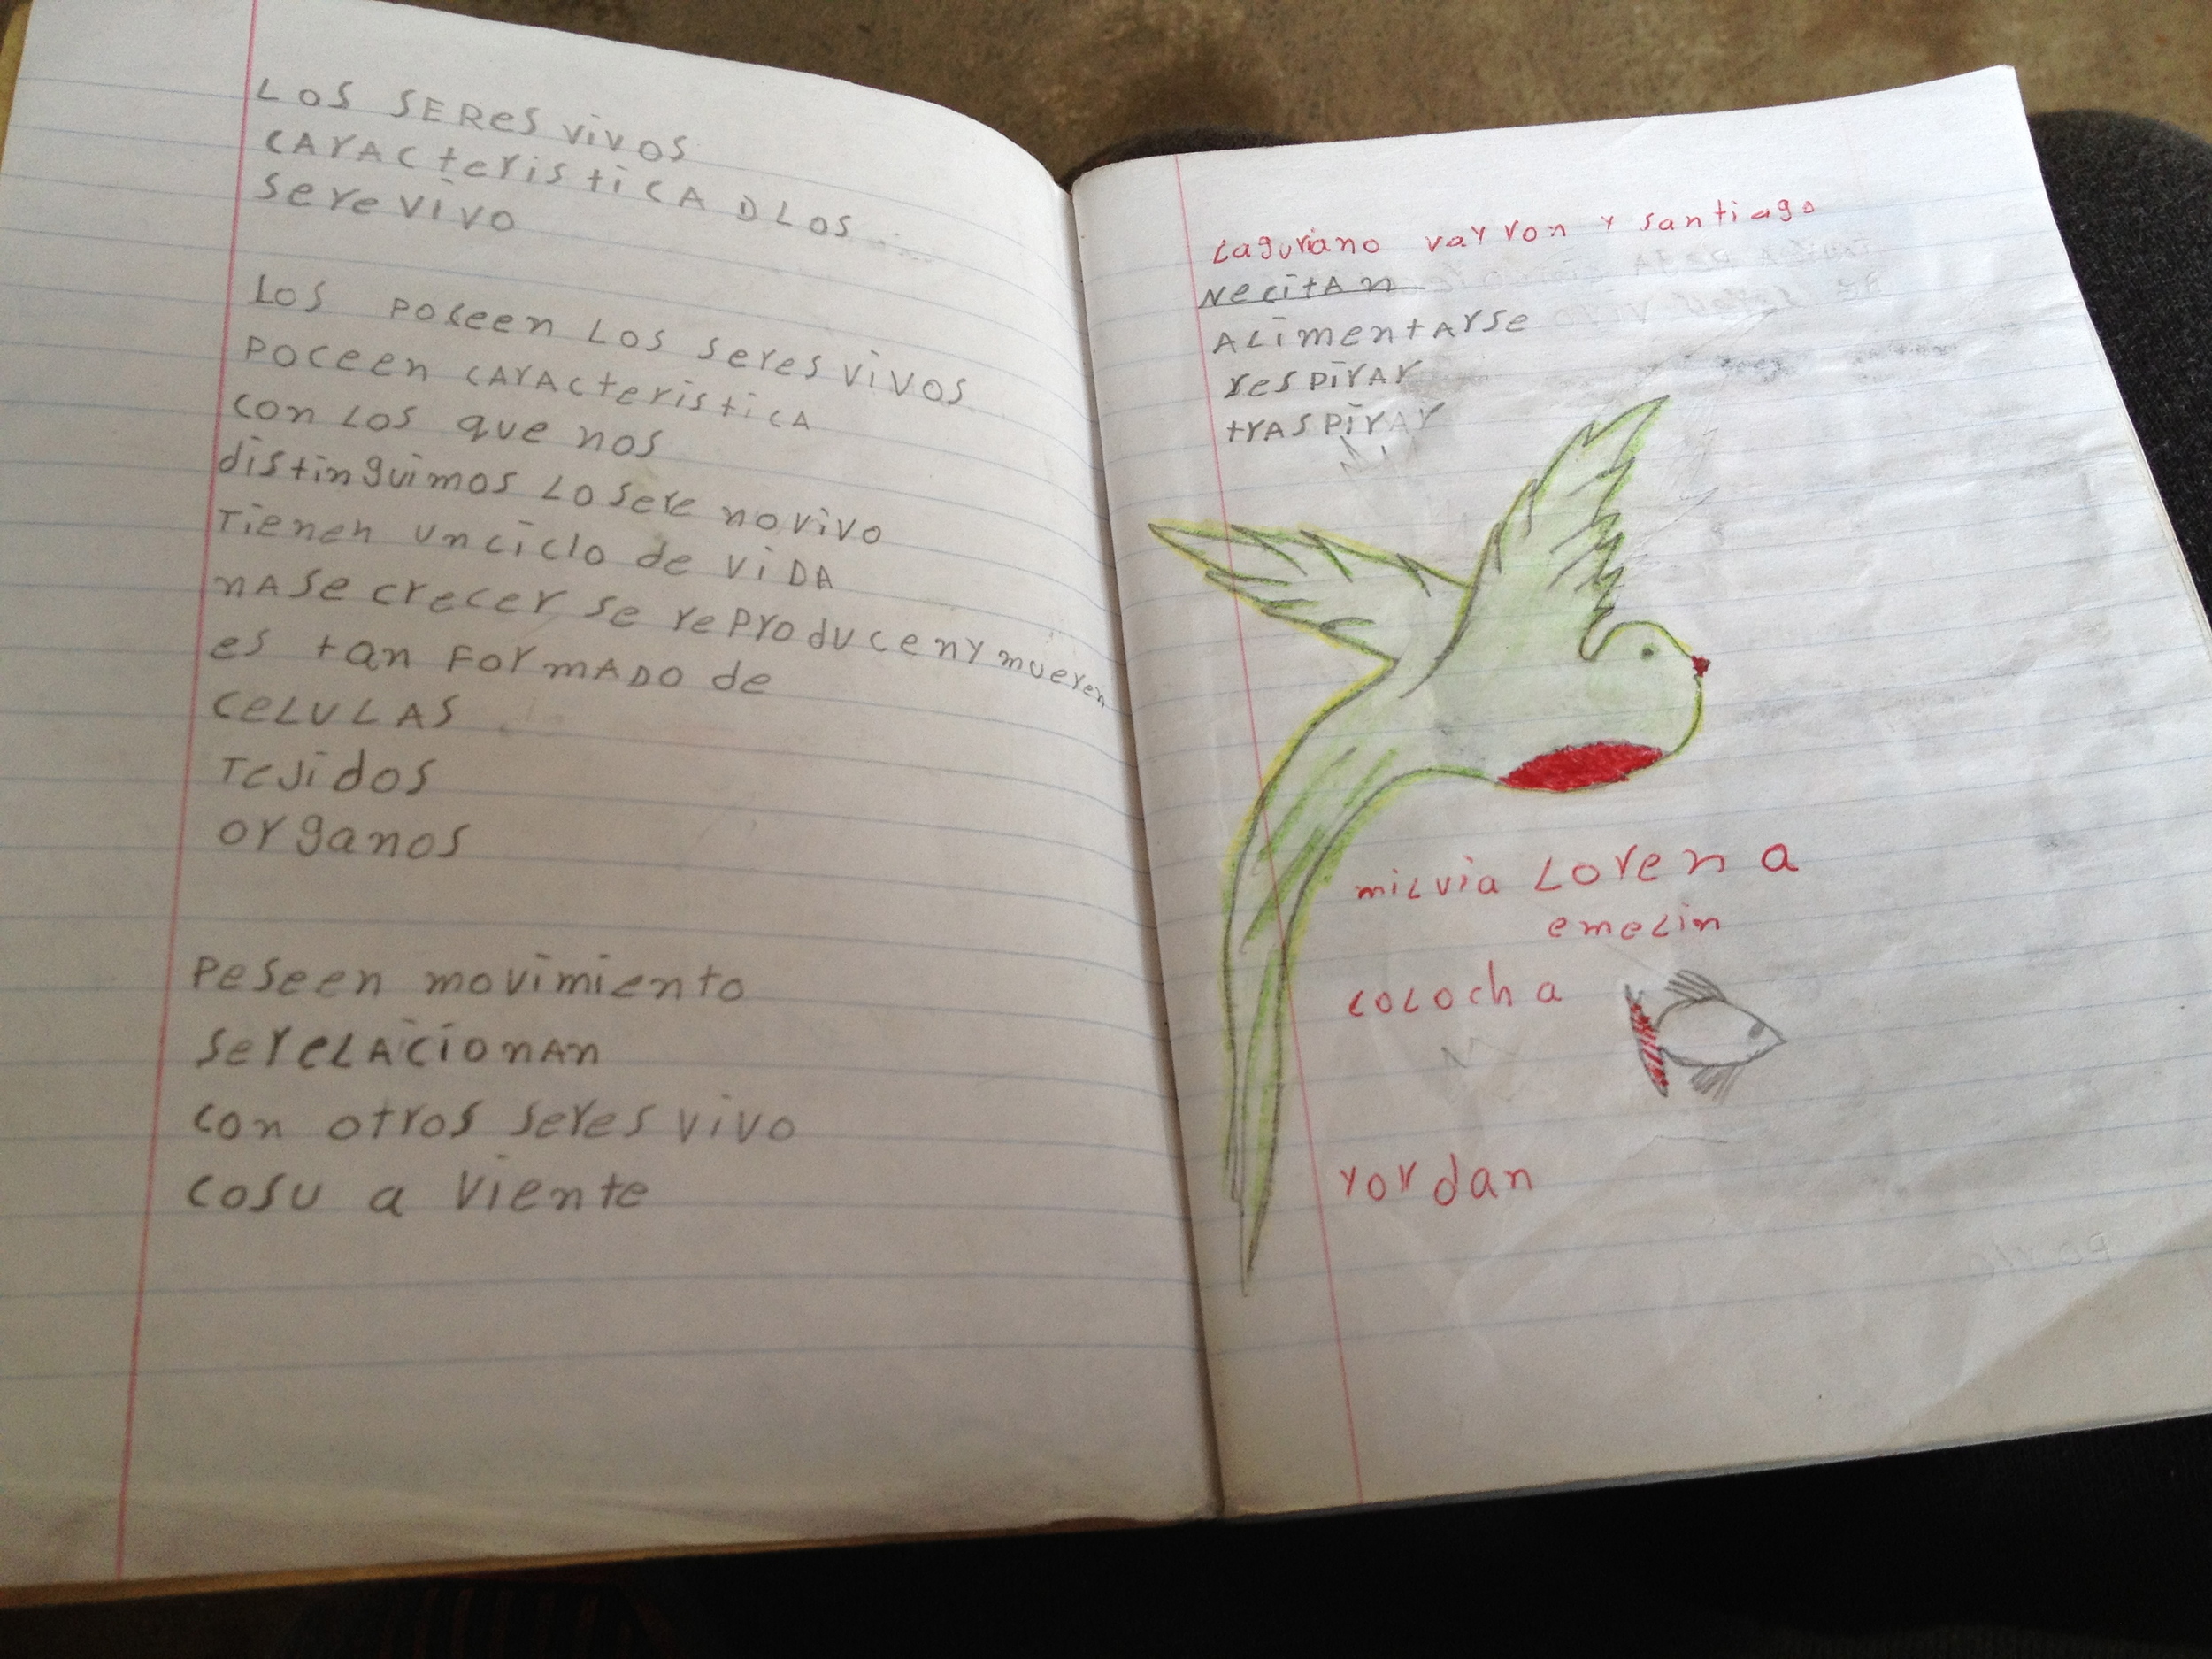 LOS SEReS vivos
CArACteristiCA DLOS
sere vivo
Los poseen Los seres vivos
Poceen CArActeristicA
con Los que nos
distinguimos Lo sere no vivo
Tienen un ciclo de viDA
nAse crecer se rePrOducen y mueren
es tan FormADO de
CeLULAS
Tejidos
organos
Peseen movimiento
se reLAcionAn
con otros seres vivo
cosu a viente
yarron y santiago
Necitan
ALimentArse
resPirAr
trAsPirAr
miLvia Lorena
emeLin
coLocha
yordan